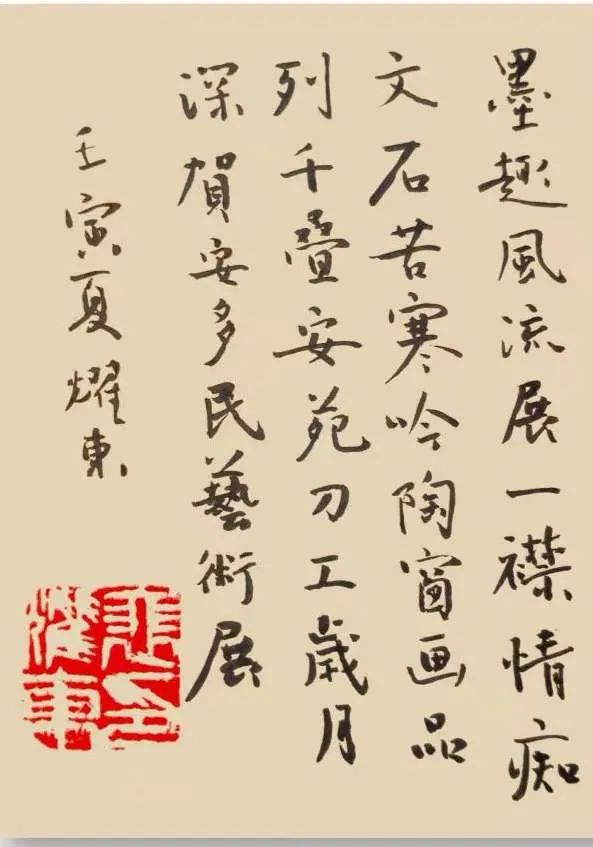 墨趣風流展一襟情痴
文石苦寒吟陶窗画品
列千疊安苑刀工歲月
深賀安多民藝術展
壬寅夏耀東